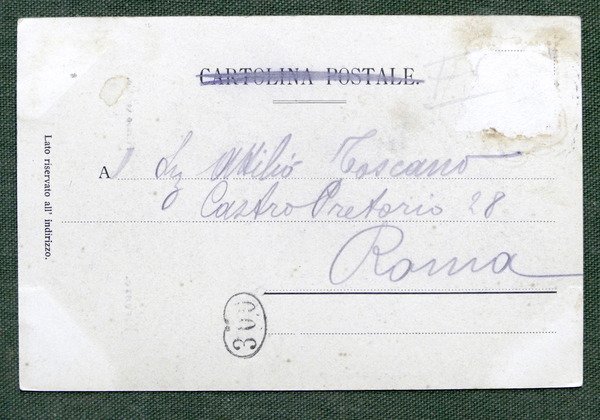 CARTOLINA POSTALE.
A l Sig Attilio Toscano
Castro Pretorio 28
Roma
Lato riservato all' indirizzo.
300